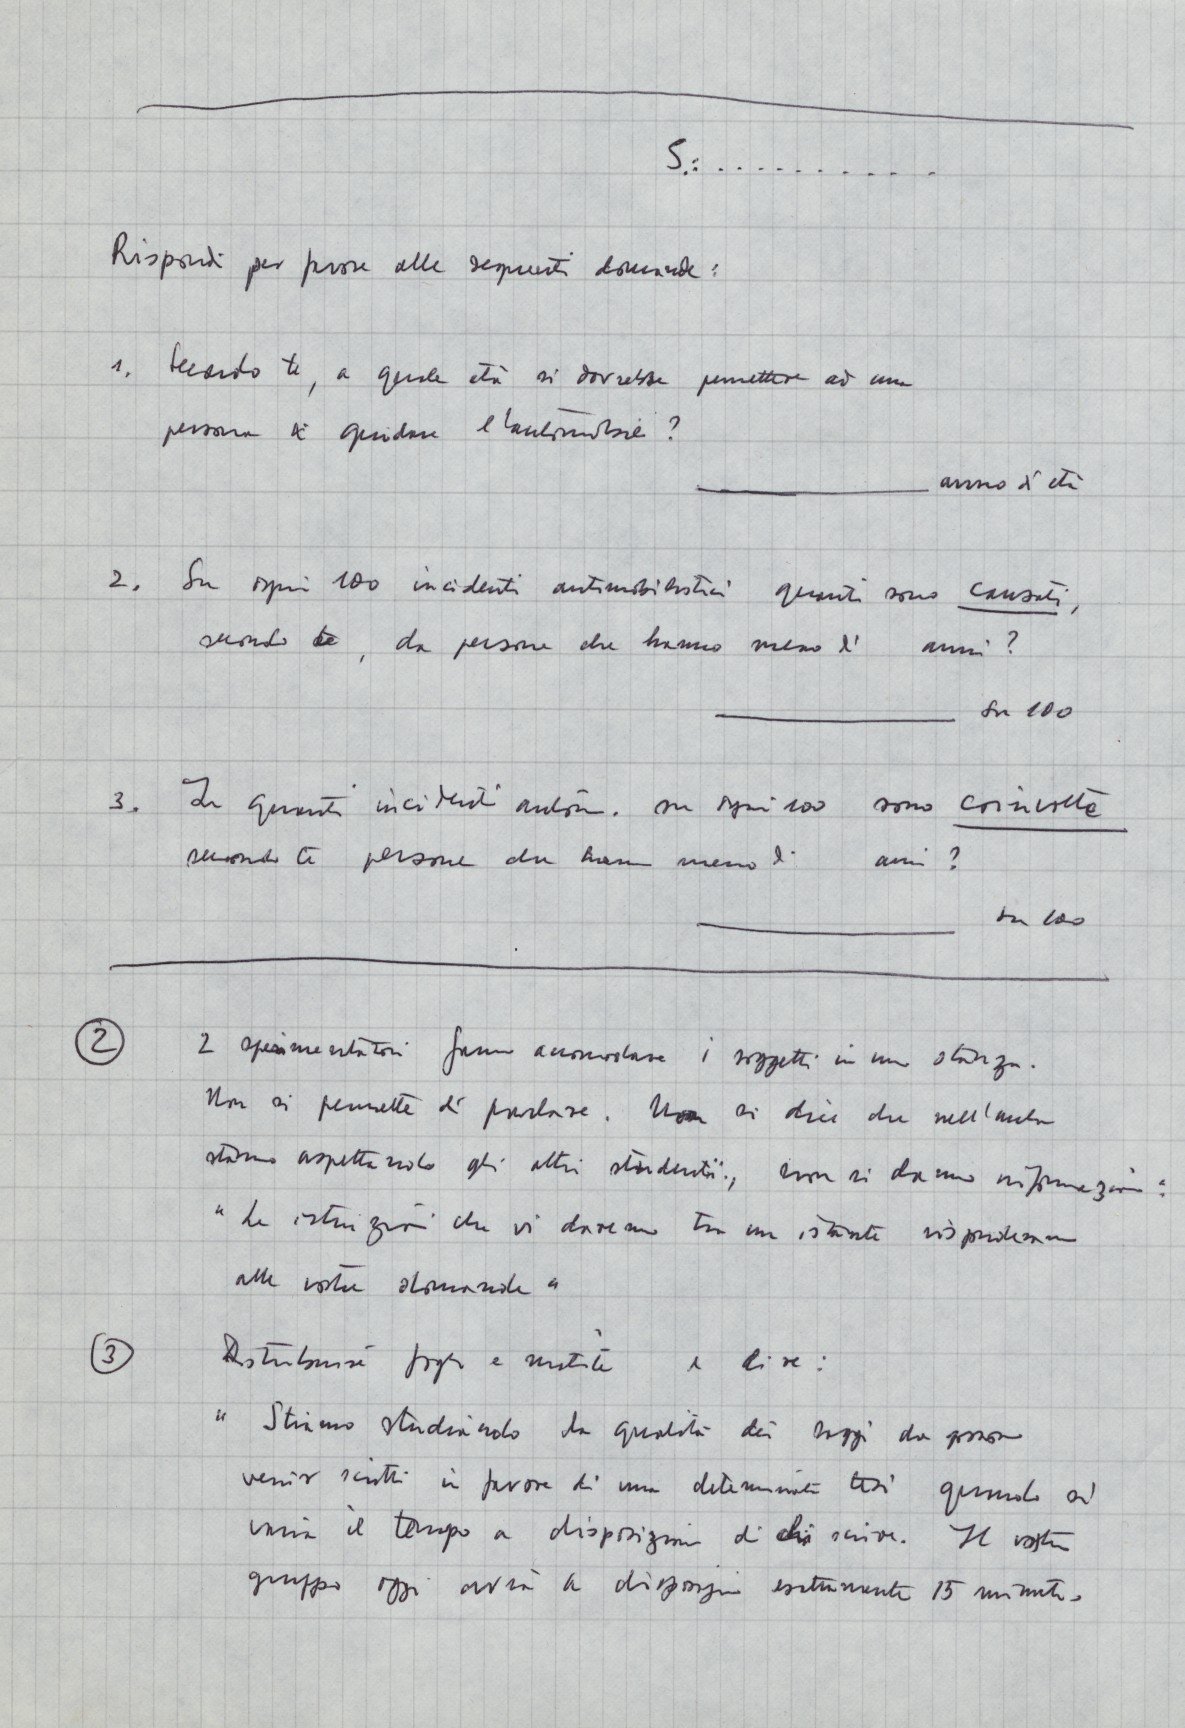 S.: ..........
Rispondi per favore alle seguenti domande:
1. Secondo te, a quale età si dovrebbe permettere ad una
persona di guidare l'automobile?
__________ anno di età
2. Su ogni 100 incidenti automobilistici quanti sono causati,
secondo te, da persone che hanno meno di anni?
__________ su 100
3. In quanti incidenti autom. su ogni 100 sono coinvolte
secondo te persone che hanno meno di anni?
__________ su 100
2 2 sperimentatori fanno accomodare i soggetti in una stanza.
Non si permette di parlare. Non si dice che nell'aula
stanno aspettando gli altri studenti, non si danno informazioni:
"Le istruzioni che vi daremo tra un istante risponderanno
alle vostre domande"
3 Distribuire fogli e matite e dire:
" Stiamo studiando la qualità dei saggi che possono
venir scritti in favore di una determinata tesi quando si
varia il tempo a disposizione di chi scrive. Il vostro
gruppo oggi avrà a disposizione esattamente 15 minuti.